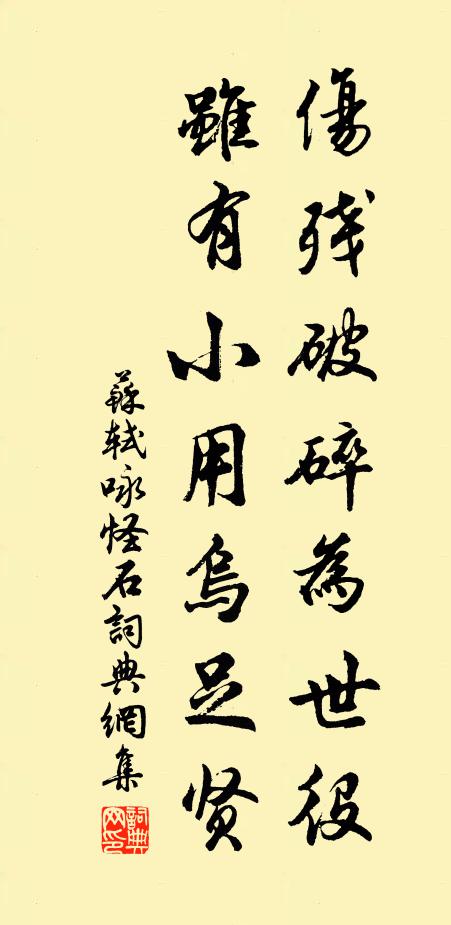 傷残破碎為世役
雖有小用烏足贤
蘇軾咏怪石詞典網集
詞典網印